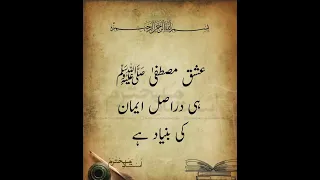 بسم اللہ الرحمن الرحیم
عشق مصطفیٰ ﷺ
ہی دراصل ایمان
کی بنیاد ہے